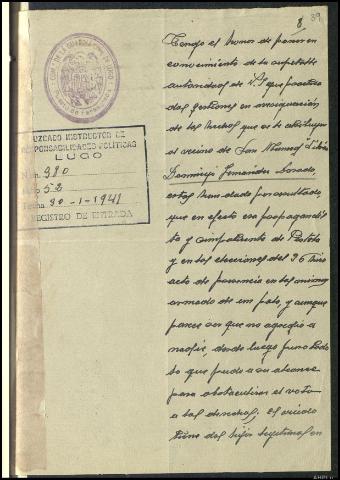 8 39
JUZGADO INSTRUCTOR DE
RESPONSABILIDADES POLÍTICAS
LUGO
Núm. 980
Folio 52
Fecha 30-1-1941
REGISTRO DE ENTRADA
Tengo el honor de poner en
conocimiento de la respetable
autoridad de V.S que practica
das gestiones en averiguación
de los hechos que se le atribuyen
al vecino de San Manuel
Domingo Fernández Losada,
estas han dado por resultado,
que en efecto era propagandis
ta y simpatizante de
y en las elecciones del 36 hizo
acto de presencia en las mismas
armado de un palo, y aunque
parece ser que no agredió a
nadie, desde luego puso todo
lo que pudo a su alcance
para obstaculizar el voto
a las derechas; el vecino
tiene dos hijos legítimos en